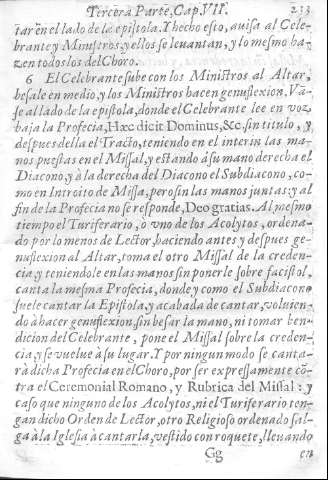 Tercera Parte, Cap. VII. 233
tar en el lado de la epistola. Y hecho esto, auisa al Cele-
brante y Ministros, y ellos se leuantan, y lo mesmo ha-
zen todos los del Choro.
6 El Celebrante sube con los Ministros al Altar,
besale en medio, y los Ministros hacen genuflexion, Va-
se al lado de la epistola, donde el Celebrante lee en voz
baja la Profecia, Hæc dicit Dominus, &c. sin titulo, y
despues della el Tracto, teniendo en el interin las ma-
nos puestas en el Missal, y estando â su mano derecha el
Diacono, y à la derecha del Diacono el Subdiacono, co-
mo en Introito de Missa, pero sin las manos juntas: y al
fin de la Profecia no se responde, Deo gratias. Al mesmo
tiempo el Turiferario, ò vno de los Acolytos, ordena-
do por lo menos de Lector, haciendo antes y despues ge-
nuflexion al Altar, toma el otro Missal de la creden-
cia, y teniendole en las manos sin ponerle sobre facistol,
canta la mesma Profecia, donde y como el Subdiacono
suele cantar la Epistola, y acabada de cantar, voluien-
do à hacer genuflexion, sin besar la mano, ni tomar ben-
dicion del Celebrante, pone el Missal sobre la creden-
cia, y se vuelue à su lugar. Y por ningun modo se canta-
rà dicha Profecia en el Choro, por ser expressamente cō-
tra el Ceremonial Romano, y Rubrica del Missal: y
caso que ninguno de los Acolytos, ni el Turiferario ten-
gan dicho Orden de Lector, otro Religioso ordenado sal-
ga à la Iglesia à cantarla, vestido con roquete, lleuando
Gg en